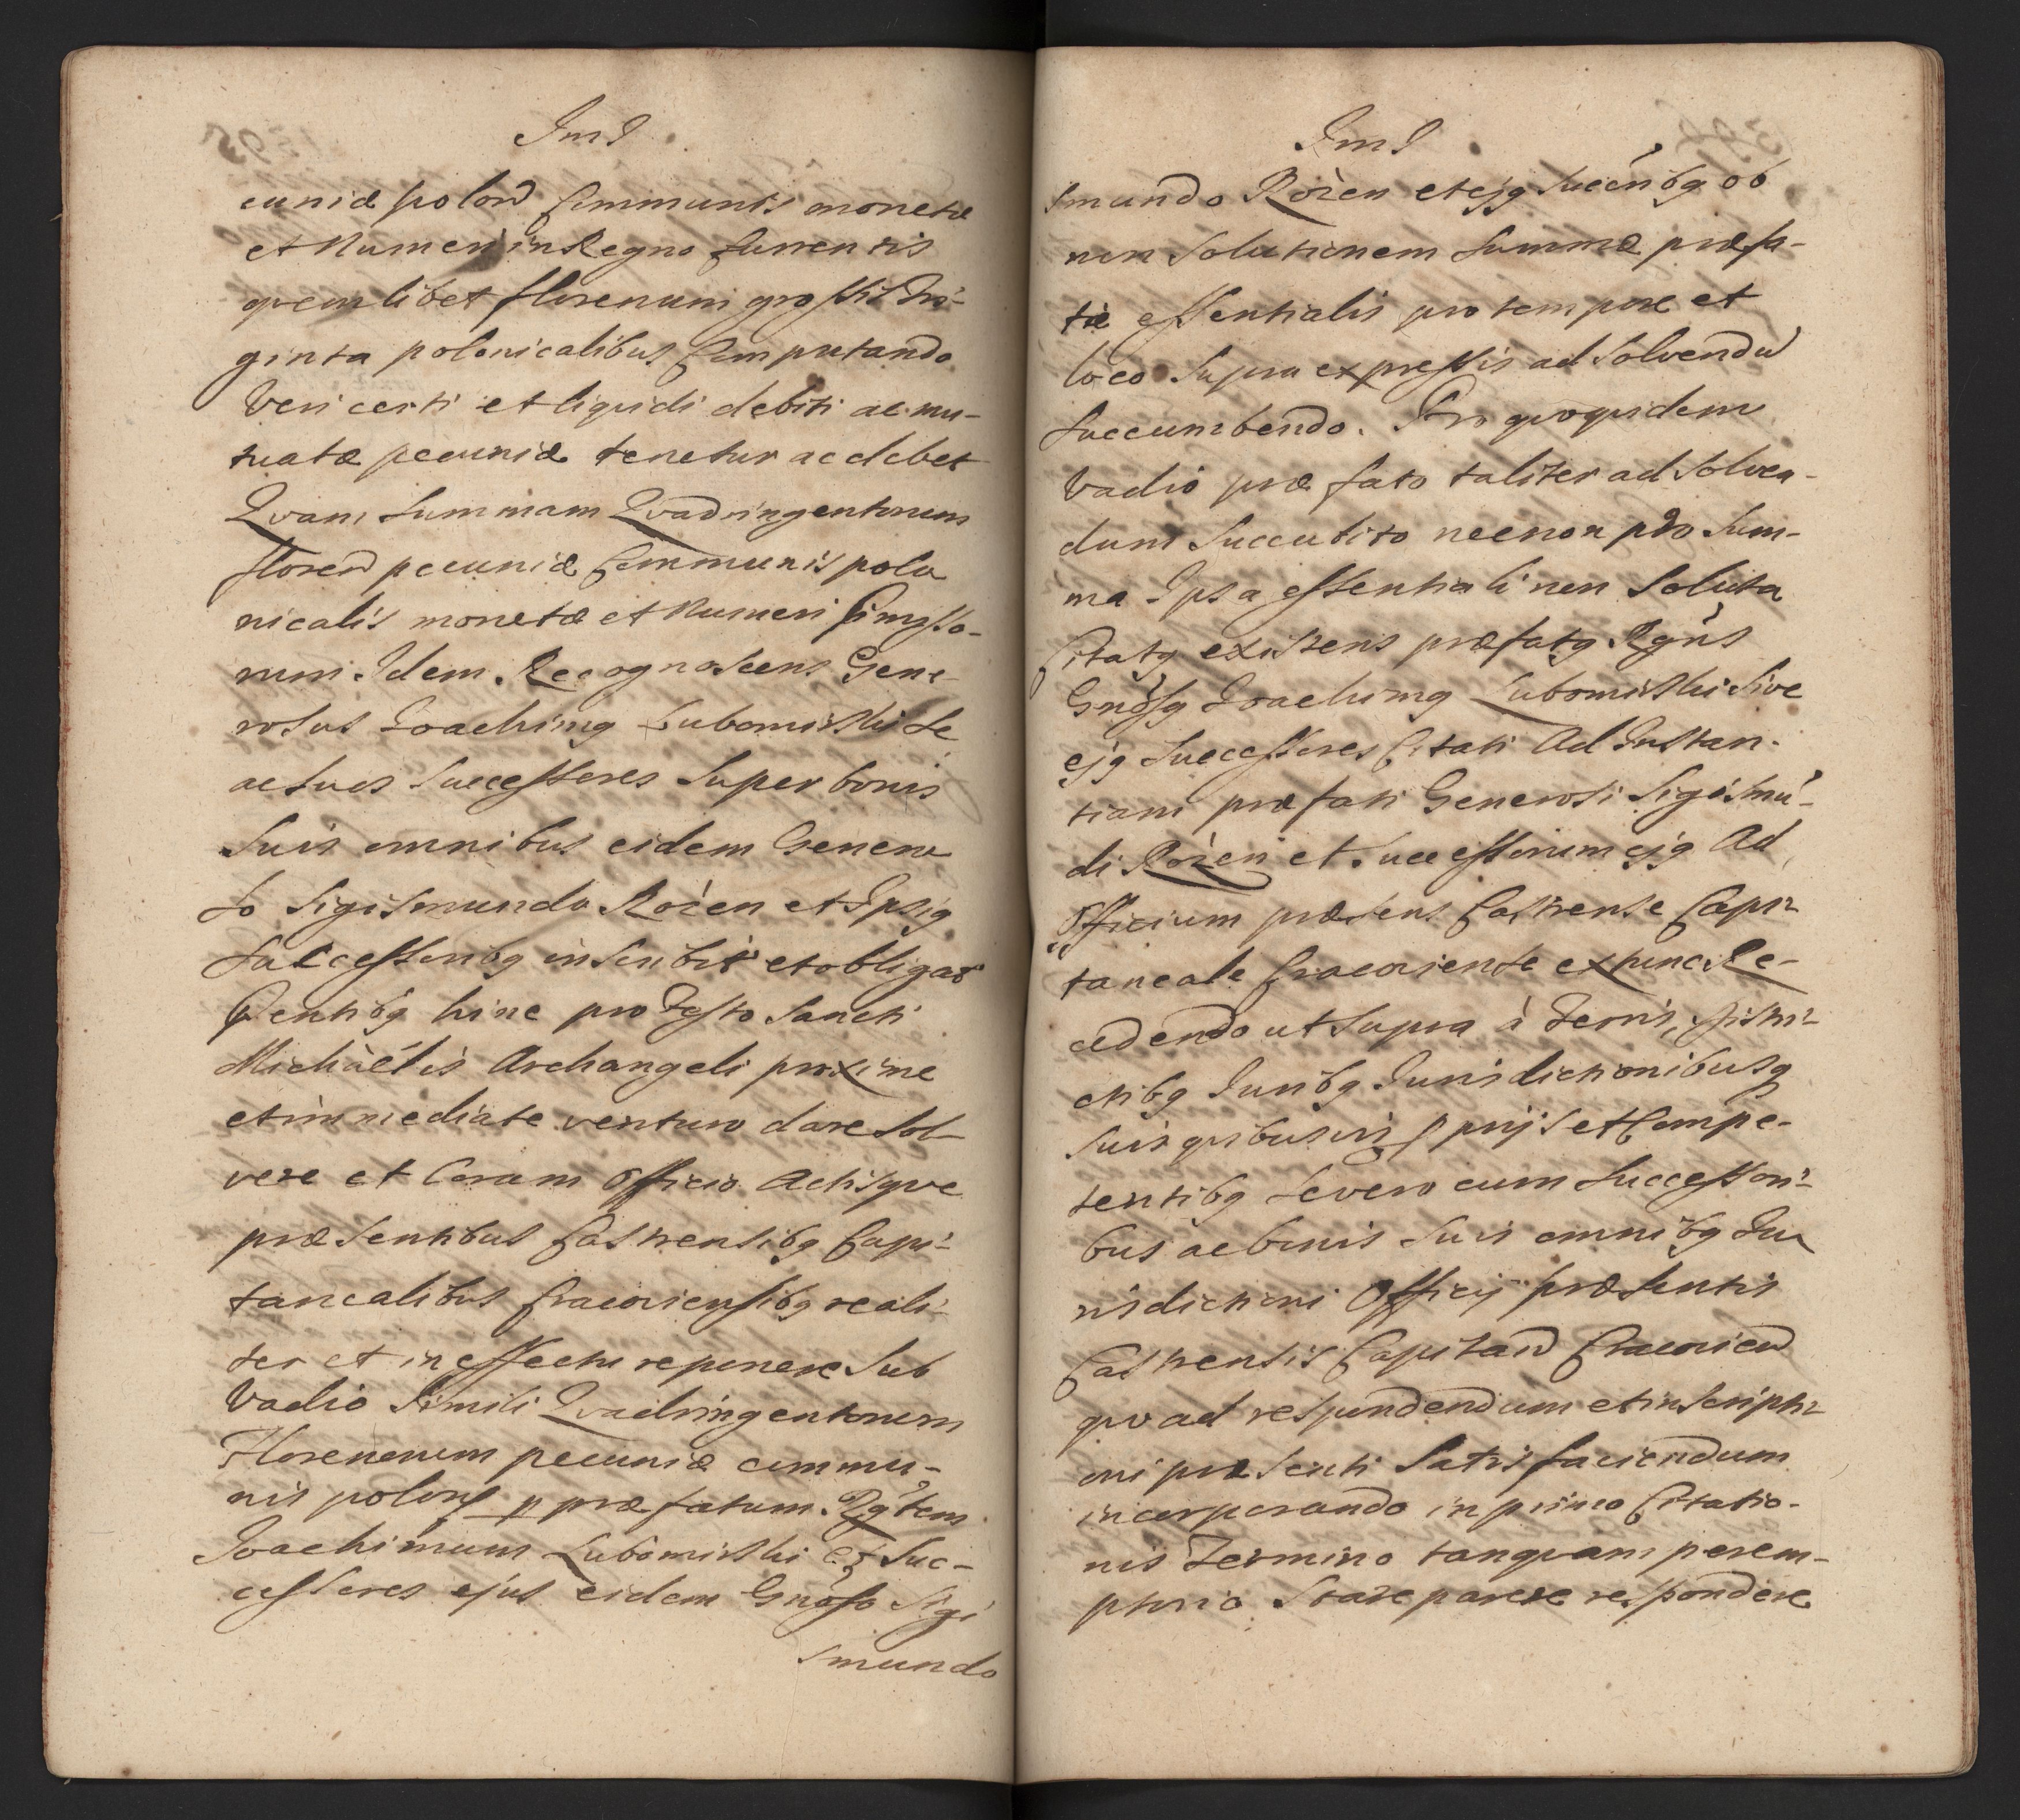 Jmd
cuniæ polon Communis monetæ
et Numeri in Regno Currentis
qvemlibet florenum grossis Tri-
ginta polonicalibus Computando
Veri certi et liqvidi debiti ac mu-
tuatæ pecuniæ tenetur ac debet
Qvam Summam Qvadringentorum
floren pecuniæ Communis polo
nicalis monetæ et Numeri
rum. Idem Recognoscens Gene-
rosus Joachimq Lubomirski Se
ac Suos Successores Super bonis
Suis omnibus eidem Genero
So Sigismundo Rożen et Ipsiq
Successoribq inscribit et obligat
hinc pro Festo Sancti
Michaëlis Archangeli proxime
et immediate venturo dare Sol-
vere et Coram Officio Actisqve
præsentibus Castrensibq Capi-
tanealibus Cracoviensibq reali-
ter et in effectu reponere Sub
Vadio Simili Qvadringentorum
Florenorum pecuniæ commu-
nis polon p præfatum Rgñtem
Joachimum Lubomirski et Suc-
cessores ejus eidem Gnoso Sigi
smundo
Jmd
smundo Rożen et ejq Succribq ob
non Solutionem Summæ præfa-
tæ essentialis pro tempore et
loco Supra expressis ad Solvendũ
Succumbendo. Pro qvoqvidem
Vadio præfato taliter ad Solven-
dum Succubito necnon pro Sum-
ma Ipsa essentiali non Soluta
Citatq existens præfatq Rgñs
Gnosq Joachimq Lubomirski Sive
ejq Successores Citati Ad Instan-
tiam præfati Generosi Sigismũ-
di Rożen et Successorum ejq Ad
Officium præsens Castrense Capi-
taneale Cracoviense ex tunc Re-
cedendo ut Supra à Terris, Distri-
ctibq Juribq Jurisdictionibusq
Suis qvibusvis pprijs et Compe-
tentibq Se vero cum Successori-
bus ac bonis Suis omnibq Ju
risdictioni Officij præsentis
Castrensis Capitan Cracovien
qvoad respondendum et inscripti-
oni præsenti Satisfaciendum
incorporando in primo Citatio-
nis Termino tanqvam perem-
ptorio Stare parere respondere